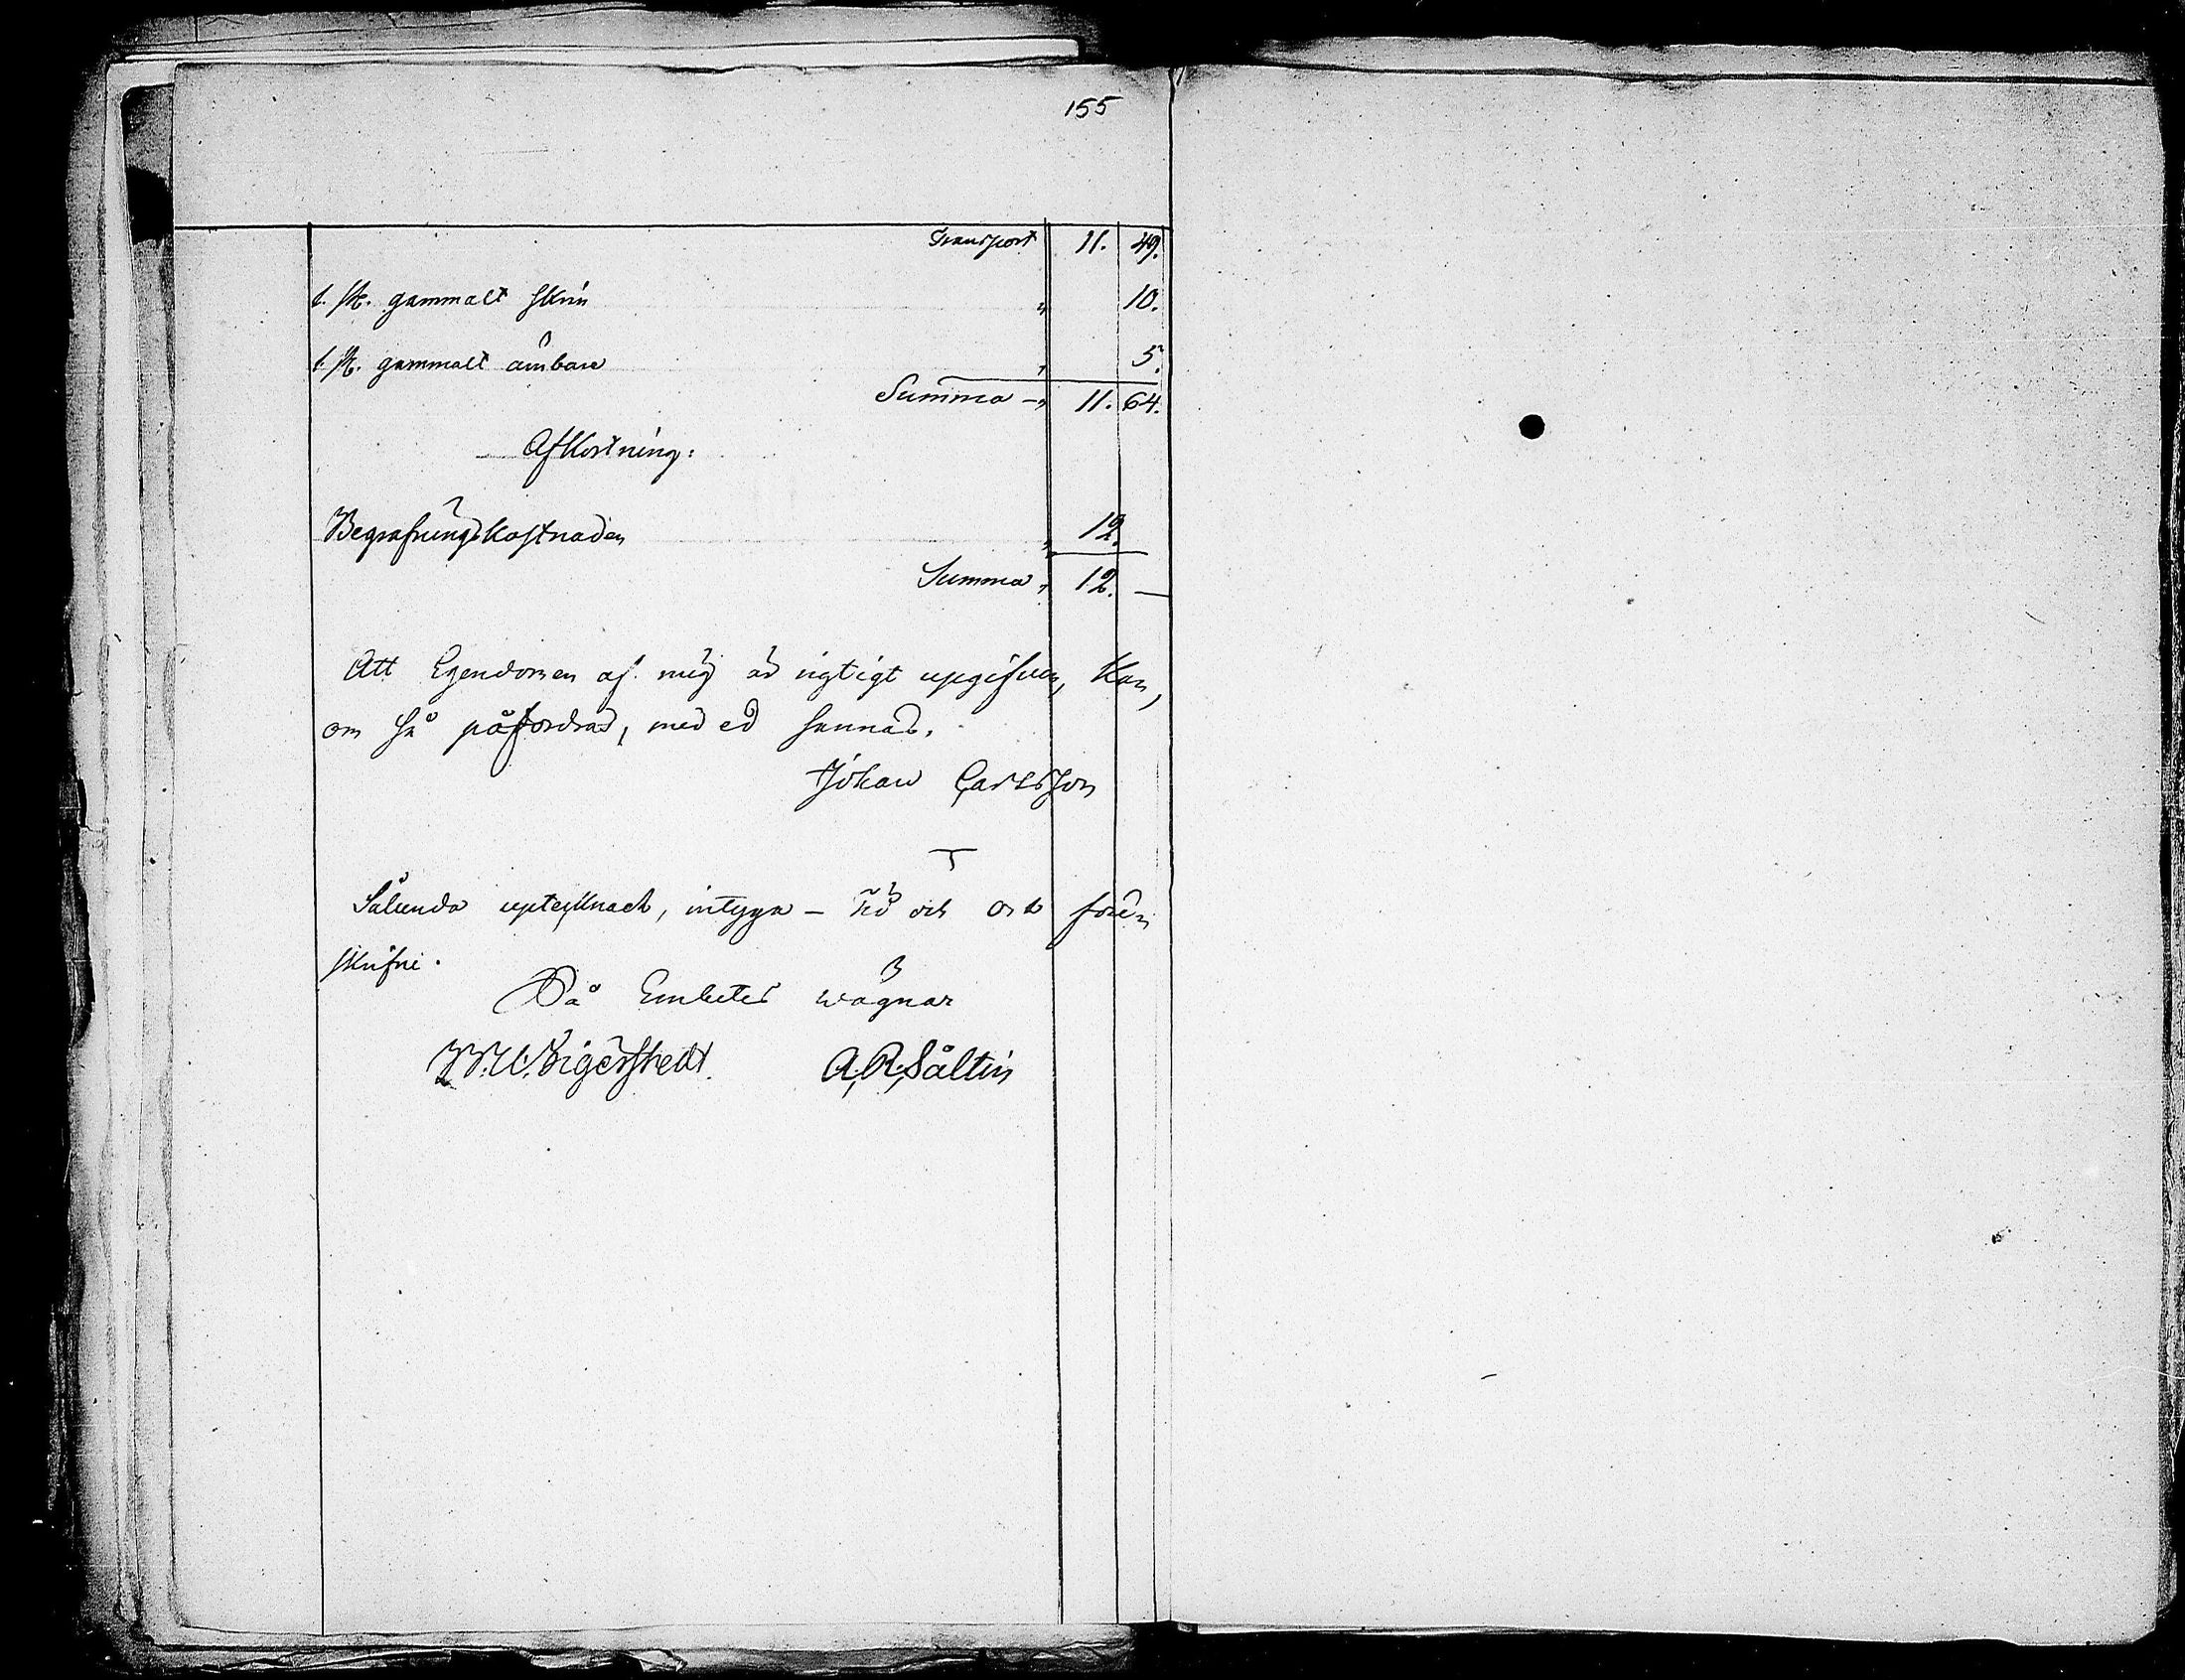 155
Transport 11. 49.
1. st. gammalt skrin " 10.
1. st. gammalt ämbare " 5.
Summa - " 11. 64.
Afkortning:
Begrafningskostnaden " 12.
Summa " 12. —
Att Egendomen af mig är rigtigt upgifven, kan,
om så påfordras, med ed sannas.
Johan Carlsson
Sålunda uptecknadt, intyga - Tid och Ort förem
skrifne.
På Embetes wägnar
A. R. Sältin